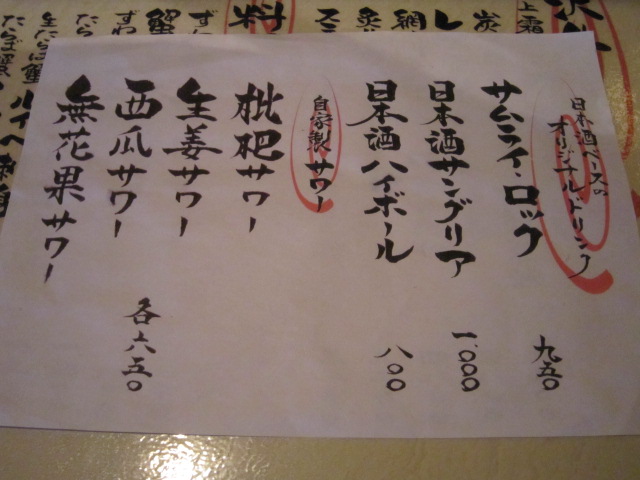 日本酒ベースの
オリジナルドリンク
サムライ・ロック 九五〇
日本酒サングリア 一、〇〇〇
日本酒ハイボール 八〇〇
自家製サワー
枇杷サワー
生姜サワー
西瓜サワー 各六五〇
無花果サワー